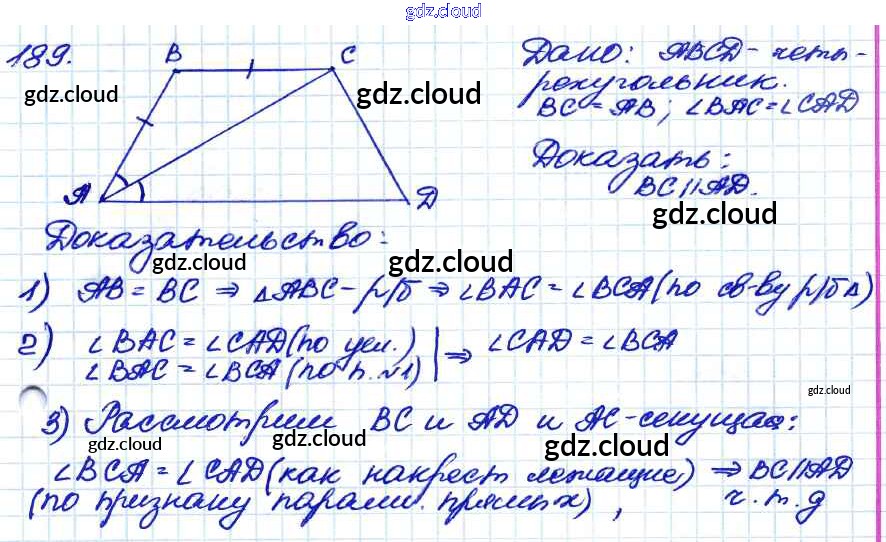 gdz.cloud
gdz.cloud
189.
B
C
A
D
gdz.cloud
gdz.cloud
Дано: ABCD - четы-
рехугольник.
BC = AB; ∠BAC = ∠CAD
gdz.cloud
Доказать:
BC || AD.
gdz.cloud
Доказательство:
gdz.cloud
gdz.cloud
1) AB = BC ⇒ △ABC - р/б ⇒ ∠BAC = ∠BCA (по св-ву р/б △)
2) ∠BAC = ∠CAD (по усл.) | ⇒ ∠CAD = ∠BCA
∠BAC = ∠BCA (по п.№1)
gdz.cloud
gdz.cloud
gdz.cloud
3) Рассмотрим BC и AD и AC - секущая:
gdz.cloud
gdz.cloud
gdz.cloud
∠BCA = ∠CAD (как накрест лежащие) ⇒ BC || AD
(по признаку паралл. прямых), ч.т.д
gdz.cloud
gdz.cloud
gdz.cloud